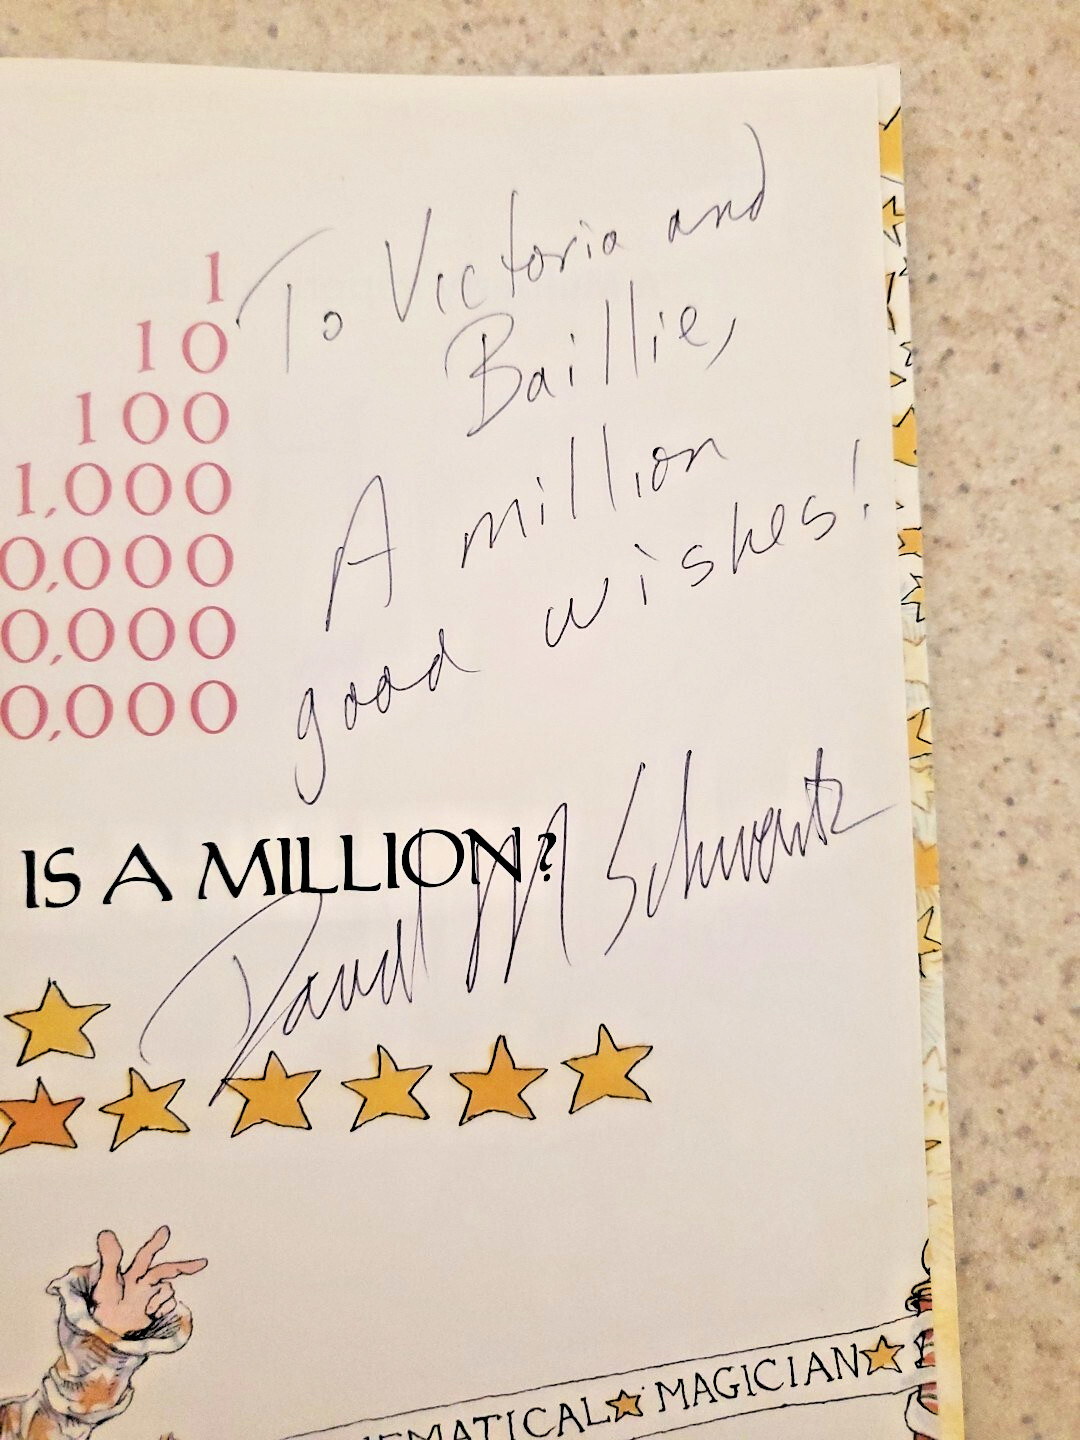 1
10
100
1,000
0,000
0,000
0,000
To Victoria and
Baillie,
A million
good wishes!
IS A MILLION?
David M Schwartz
HEMATICAL MAGICIAN